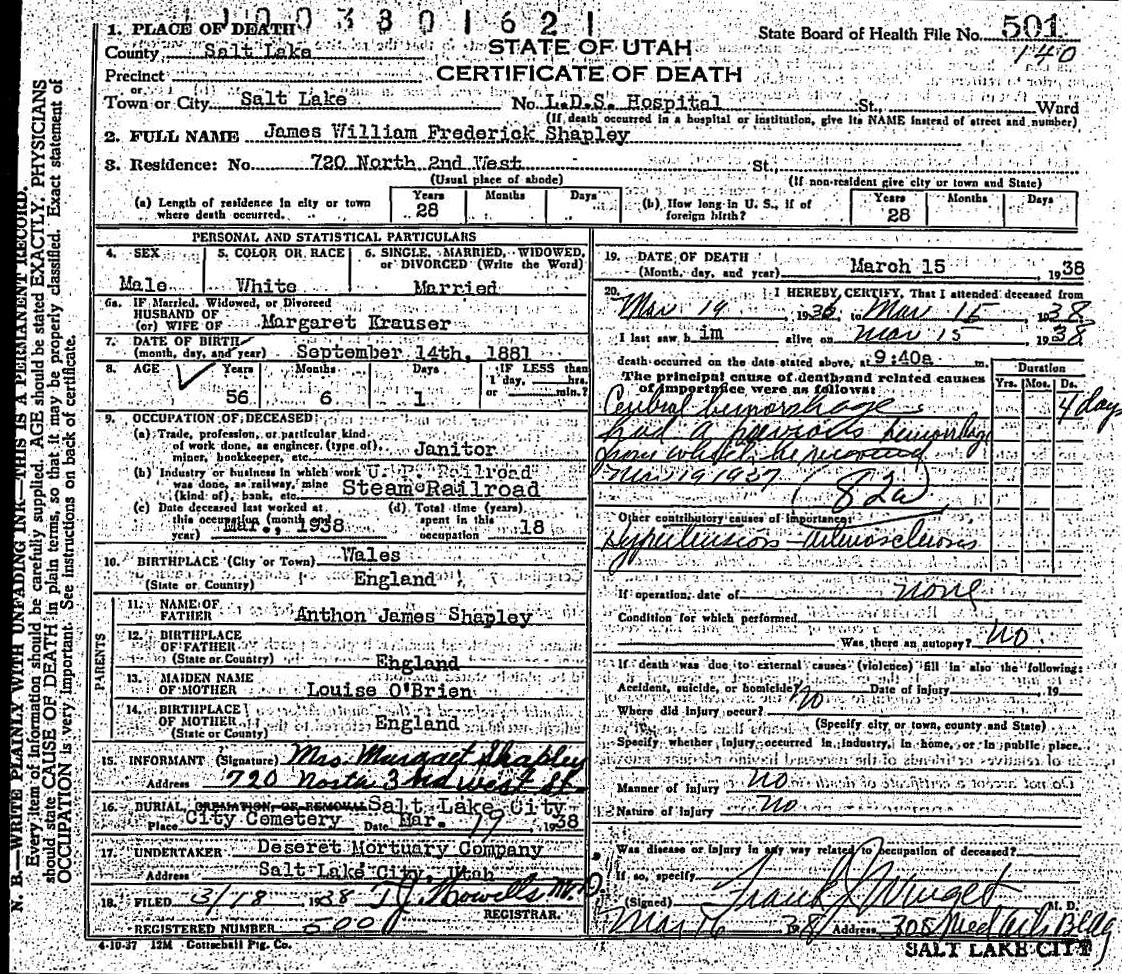 1003801621
1. PLACE OF DEATH
State Board of Health File No. 501
140
County Salt Lake
STATE OF UTAH
Precinct
CERTIFICATE OF DEATH
or
Town or City Salt Lake No. L.D.S. Hospital St., Ward
(If death occurred in a hospital or institution, give its NAME instead of street and number)
2. FULL NAME James William Frederick Shapley
3. Residence: No. 720 North 2nd West St.
(Usual place of abode) (If non-resident give city or town and State)
(a) Length of residence in city or town where death occurred. Years 28 Months Days
(b) How long in U. S., if of foreign birth? Years 28 Months Days
PERSONAL AND STATISTICAL PARTICULARS
4. SEX Male
5. COLOR OR RACE White
6. SINGLE, MARRIED, WIDOWED, or DIVORCED (Write the Word) Married
6a. IF Married, Widowed, or Divorced
HUSBAND OF
(or) WIFE OF Margaret Krauser
7. DATE OF BIRTH
(month, day, and year) September 14th, 1881
8. AGE Years 56 Months 6 Days 1 IF LESS than 1 day, hrs. or min.?
9. OCCUPATION OF DECEASED:
(a) Trade, profession, or particular kind
of work done, as engineer (type of), Janitor
miner, bookkeeper, etc.
(b) Industry or business in which work U. P. Railroad
was done, as railway, mine
(kind of), bank, etc. Steam Railroad
(c) Date deceased last worked at
this occupation (month and
year) Mar., 1938
(d) Total time (years)
spent in this
occupation 18
10. BIRTHPLACE (City or Town) Wales
(State or Country) England
PARENTS
11. NAME OF
FATHER Anthon James Shapley
12. BIRTHPLACE
OF FATHER
(State or Country) England
13. MAIDEN NAME
OF MOTHER Louise O'Brien
14. BIRTHPLACE
OF MOTHER England
(State or Country)
15. INFORMANT (Signature) Mrs Margaret Shapley
Address 720 North 3nd West St.
16. BURIAL, CREMATION, OR REMOVAL Salt Lake City
Place City Cemetery Date Mar. 19 1938
17. UNDERTAKER Deseret Mortuary Company
Address Salt Lake City, Utah
18. FILED 3/18 1938 T J Howells M.D.
REGISTRAR.
REGISTERED NUMBER 500
4-10-37 12M Gottschall Ptg. Co.
19. DATE OF DEATH
(Month, day, and year) March 15 1938
20. I HEREBY CERTIFY, That I attended deceased from
Mar 19 1936, to Mar 15 1938
I last saw him alive on Mar 15 1938
death occurred on the date stated above, at 9:40a m.
The principal cause of death and related causes
of importance were as follows:
Duration
Yrs. Mos. Ds.
Cerebral hemorrhage 4 days
had a previous hemorrhage
from which he recovered
Mar 19 1937
(82a)
Other contributory causes of importance:
Hypertension Arteriosclerosis
If operation, date of none
Condition for which performed
Was there an autopsy? no
If death was due to external causes (violence) fill in also the following:
Accident, suicide, or homicide? no Date of injury 19
Where did injury occur?
(Specify city or town, county and State)
Specify whether injury occurred in industry, in home, or in public place.
Manner of Injury no
Nature of Injury no
Was disease or injury in any way related to occupation of deceased?
If so, specify
(Signed) Frank J Winget M. D.
Mar 16 1938 Address 305 Med Arts Bldg
SALT LAKE CITY
N. B.—WRITE PLAINLY WITH UNFADING INK—THIS IS A PERMANENT RECORD.
Every item of information should be carefully supplied. AGE should be stated EXACTLY. PHYSICIANS
should state CAUSE OF DEATH in plain terms, so that it may be properly classified. Exact statement of
OCCUPATION is very important. See instructions on back of certificate.